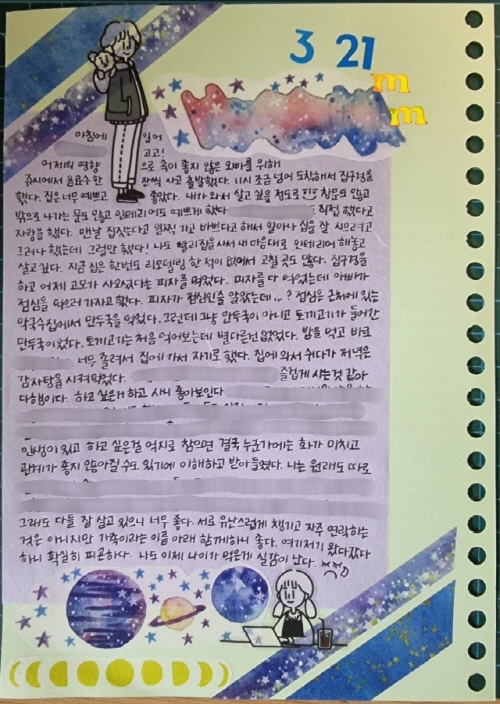 3 21
m
m
아침에 일어
고고!
어제의 영향으로 속이 좋지 않은 오빠를 위해
쥬시에서 음료수 한 잔씩 사고 출발했다. 11시 조금 넘어 도착해서 집구경을
했다. 집은 너무 예쁘고 좋았다. 내가 와서 살고 싶을 정도로 창문도 많고
밖으로 나가는 문도 많고 인테리어도 예쁘게 했다 직접 했다고
자랑을 했다. 맨날 집짓는다고 왔다 갔다 바쁘다고 해서 얼마나 집을 잘 지으려고
그러나 했는데 그럴만 했다! 나도 빨리 집을 사서 내 마음대로 인테리어 해놓고
살고 싶다. 지금 집은 한번도 리모델링 한 적이 없어서 고칠 곳도 많다. 집구경을
하고 어제 고모가 사오셨다는 피자를 먹었다. 피자를 다 먹었는데 아빠가
점심을 먹으러 가자고 했다. 피자가 점심인줄 알았는데..? 점심은 근처에 있는
막국수집에서 만두국을 먹었다. 그런데 그냥 만두국이 아니고 토끼고기가 들어간
만두국이었다. 토끼고기는 처음 먹어보는데 별다른건 없었다. 밥을 먹고 바로
너무 졸려서 집에 가서 자기로 했다. 집에 와서 쉬다가 저녁은
감자탕을 시켜먹었다. 즐겁게 사는 것 같아
다행이다. 하고 싶은거 하고 사니 좋아보인다
인생이 있고 하고 싶은걸 억지로 참으면 결국 누군가에는 화가 미치고
관계가 좋지 않아질 수도 있기에 이해하고 받아들였다. 나는 원래도 따로
그래도 다들 잘 살고 있으니 너무 좋다. 서로 유난스럽게 챙기고 자주 연락하는
것은 아니지만 가족이라는 이름 아래 함께하니 좋다. 여기저기 왔다갔다
하니 확실히 피곤하다. 나도 이제 나이가 먹은게 실감이 난다.